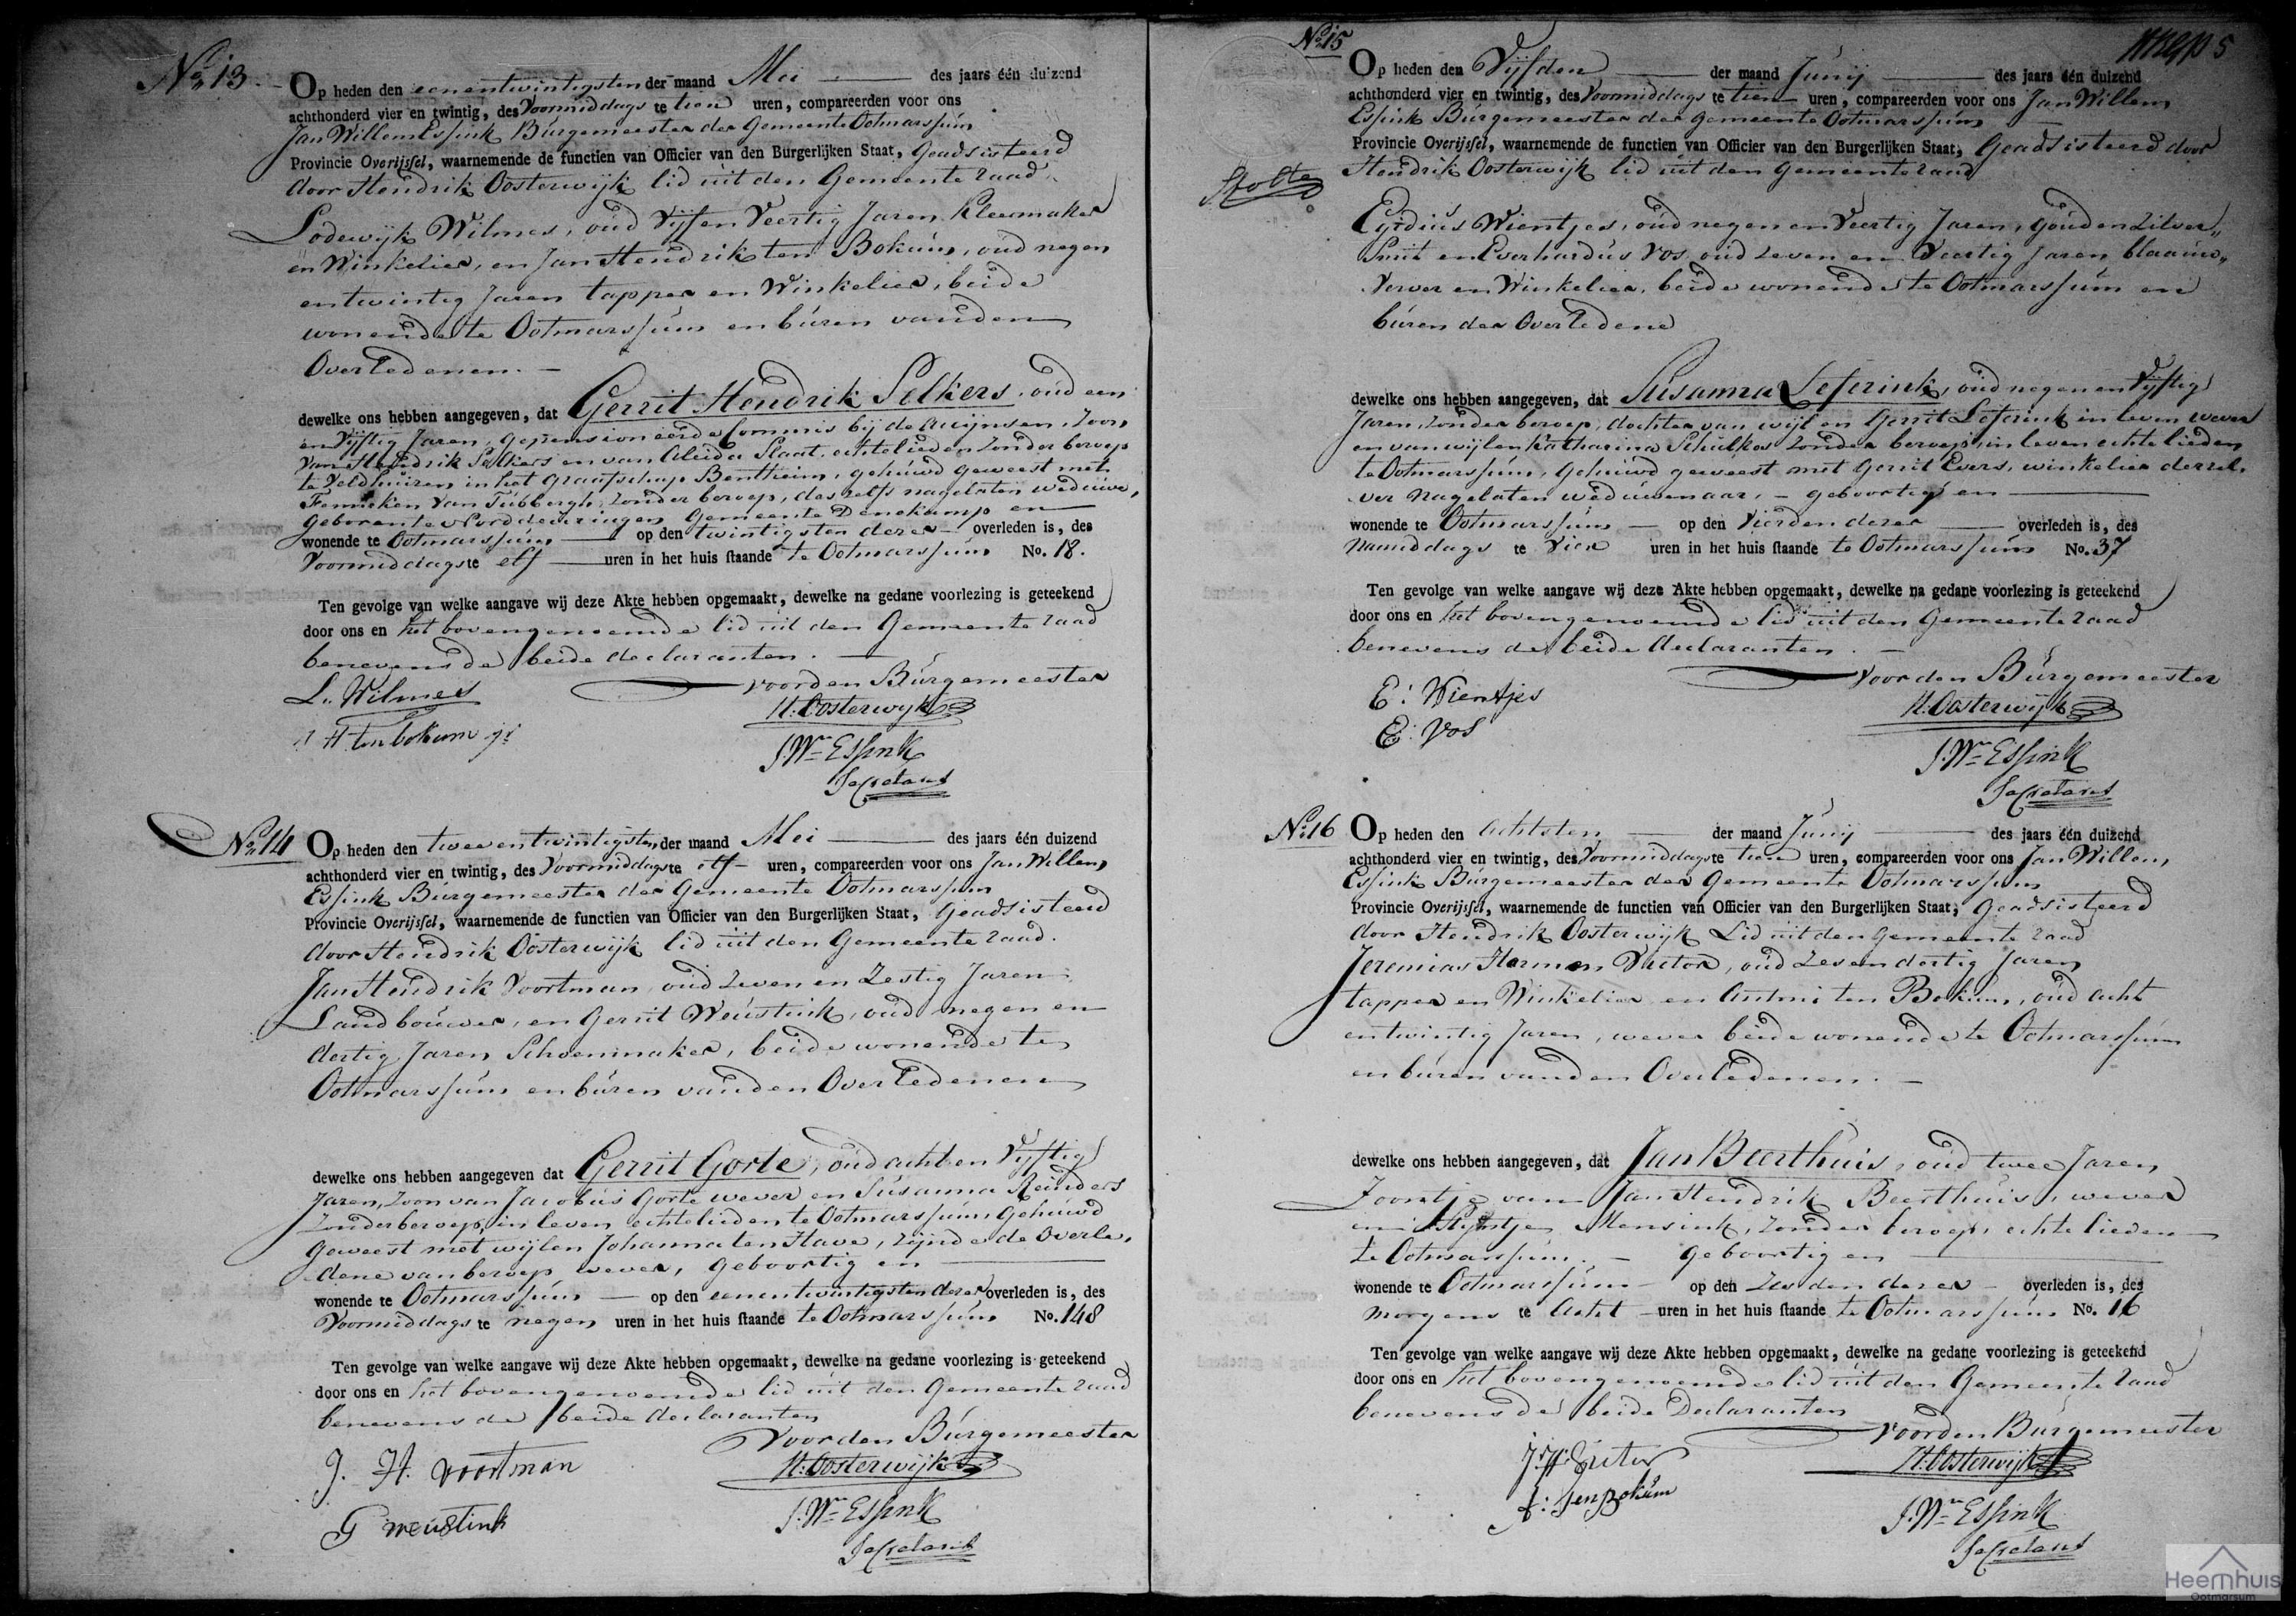 No. 13.
Op heden den eenentwintigsten der maand Mei des jaars één duizend
achthonderd vier en twintig, des Voormiddags te tien uren, compareerden voor ons
Jan Willem Essink Burgemeester der Gemeente Ootmarssum
Provincie Overijssel, waarnemende de functien van Officier van den Burgerlijken Staat, Geadsisteerd
door Hendrik Oosterwijk lid uit den Gemeente raad
Lodewijk Wilmes, oud Vijf en Veertig Jaren Kleermaker
en Winkelier, en Jan Hendrik ten Bokum, oud negen
en twintig Jaren tapper en Winkelier, beide
wonende te Ootmarssum en buren van den
Overledenen. —
dewelke ons hebben aangegeven, dat Gerrit Hendrik Selkers, oud een
en Vijftig Jaren, gepensioneerde Commis bij de Accijnsen, Zoon
van Hendrik Selkers en van Aleida Slaat, echtelieden zonder beroep
te Veldhuizen in het Graafschap Bentheim, gehuwd geweest met
Fenneken van Tubbergh, zonder beroep, des zelfs nagelaten weduwe,
geboren te Noorddeurningen Gemeente Denekamp en
wonende te Ootmarssum op den twintigsten dezer overleden is, des
Voormiddags te elf uren in het huis staande te Ootmarssum No. 18.
Ten gevolge van welke aangave wij deze Akte hebben opgemaakt, dewelke na gedane voorlezing is geteekend
door ons en het bovengenoemde lid uit den Gemeente raad
benevens de beide declaranten.
voor den Burgemeester
L. Wilmes
H. Oosterwijk
H ten bokum jr
J. Wm Essink
Secretaris
No. 14
Op heden den twee en twintigsten der maand Mei des jaars één duizend
achthonderd vier en twintig, des Voormiddags te elf uren, compareerden voor ons Jan Willem
Essink Burgemeester der Gemeente Ootmarssum
Provincie Overijssel, waarnemende de functien van Officier van den Burgerlijken Staat, Geadsisteerd
door Hendrik Oosterwijk lid uit den Gemeente raad.
Jan Hendrik Voortman, oud Zeven en Zestig Jaren
Landbouwer, en Gerrit Weustink, oud negen en
dertig Jaren Schoenmaker, beide wonende te
Ootmarssum en buren van den Overledenen
dewelke ons hebben aangegeven dat Gerrit Gorte, oud acht en Vijftig
Jaren, Zoon van Jacobus Gorte wever en Susanna Reinders
zonder beroep, in leven echtelieden te Ootmarssum, Gehuwd
geweest met wijlen Johanna ten Have, zijnde de Overle,
dene van beroep wever, geboortig en
wonende te Ootmarssum op den eenentwintigsten dezer overleden is, des
Voormiddags te negen uren in het huis staande te Ootmarssum No. 148
Ten gevolge van welke aangave wij deze Akte hebben opgemaakt, dewelke na gedane voorlezing is geteekend
door ons en het bovengenoemde lid uit den Gemeente raad
benevens de beide declaranten
Voor den Burgemeester
J. H. Voortman
H. Oosterwijk
G Weustink
J. Wm Essink
Secretaris
No. 15
5
Op heden den Vijfden der maand Junij des jaars één duizend
achthonderd vier en twintig, des Voormiddags te tien uren, compareerden voor ons Jan Willem
Essink Burgemeester der Gemeente Ootmarssum
Provincie Overijssel, waarnemende de functien van Officier van den Burgerlijken Staat, Geadsisteerd door
Hendrik Oosterwijk lid uit den Gemeente raad
Egidius Wientjes, oud negen en Veertig Jaren, Goud en Zilver„
Smit en Everhardus Vos oud zeven en Veertig Jaren blaauw„
Verver en Winkelier, beide wonende te Ootmarssum en
buren der Overledene
dewelke ons hebben aangegeven, dat Susanna Leferink, oud negen en Vijftig
Jaren, zonder beroep, dochter van wijlen Gerrit Leferink in leven wever
en van wijlen Katharina Schulkes zonder beroep, in leven echtelieden
te Ootmarssum, Gehuwd geweest met Gerrit Evers, winkelier derzel,
ver nagelaten weduwenaar, — geboortig en
wonende te Ootmarssum op den Vierden dezer overleden is, des
Namiddags te Vier uren in het huis staande te Ootmarssum No. 37
Ten gevolge van welke aangave wij deze Akte hebben opgemaakt, dewelke na gedane voorlezing is geteekend
door ons en het bovengenoemde lid uit den Gemeente raad
benevens de beide declaranten. —
Voor den Burgemeester
E: Wientjes
H. Oosterwijk
E: Vos
J. Wm Essink
Secretaris
No. 16
Op heden den Achtsten der maand Junij des jaars één duizend
achthonderd vier en twintig, des Voormiddags te tien uren, compareerden voor ons Jan Willem
Essink Burgemeester der Gemeente Ootmarssum
Provincie Overijssel, waarnemende de functien van Officier van den Burgerlijken Staat, Geadsisteerd
door Hendrik Oosterwijk Lid uit den Gemeente raad
Jeremias Harmen Victor, oud Zesendertig Jaren
tapper en Winkelier en Antoni ten Bokum, oud acht
en twintig Jaren, wever beide wonende te Ootmarssum
en buren van den Overledenen. —
dewelke ons hebben aangegeven, dat Jan Beerthuis, oud twee Jaren
Zoontje van Jan Hendrik Beerthuis, wever
en Stijntje Mensink, zonder beroep, echtelieden
te Ootmarssum. — geboortig en
wonende te Ootmarssum op den Zesden dezer overleden is, des
morgens te Acht uren in het huis staande te Ootmarssum No. 16
Ten gevolge van welke aangave wij deze Akte hebben opgemaakt, dewelke na gedane voorlezing is geteekend
door ons en het bovengenoemde lid uit den Gemeente raad
benevens de beide Declaranten
Voor den Burgemeester
J. H. Victor
H. Oosterwijk
A: ten Bokum
J. Wm Essink
Secretaris
Heemhuis
Ootmarsum